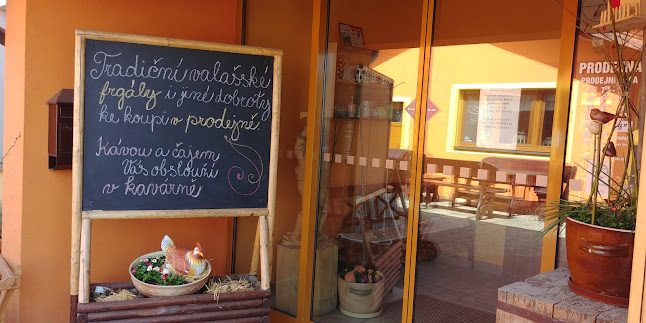 Tradiční valašské
frgály i jiné dobroty
ke koupi v prodejně.
Kávou a čajem
Vás obslouží
v kavárně
PRODEJNA